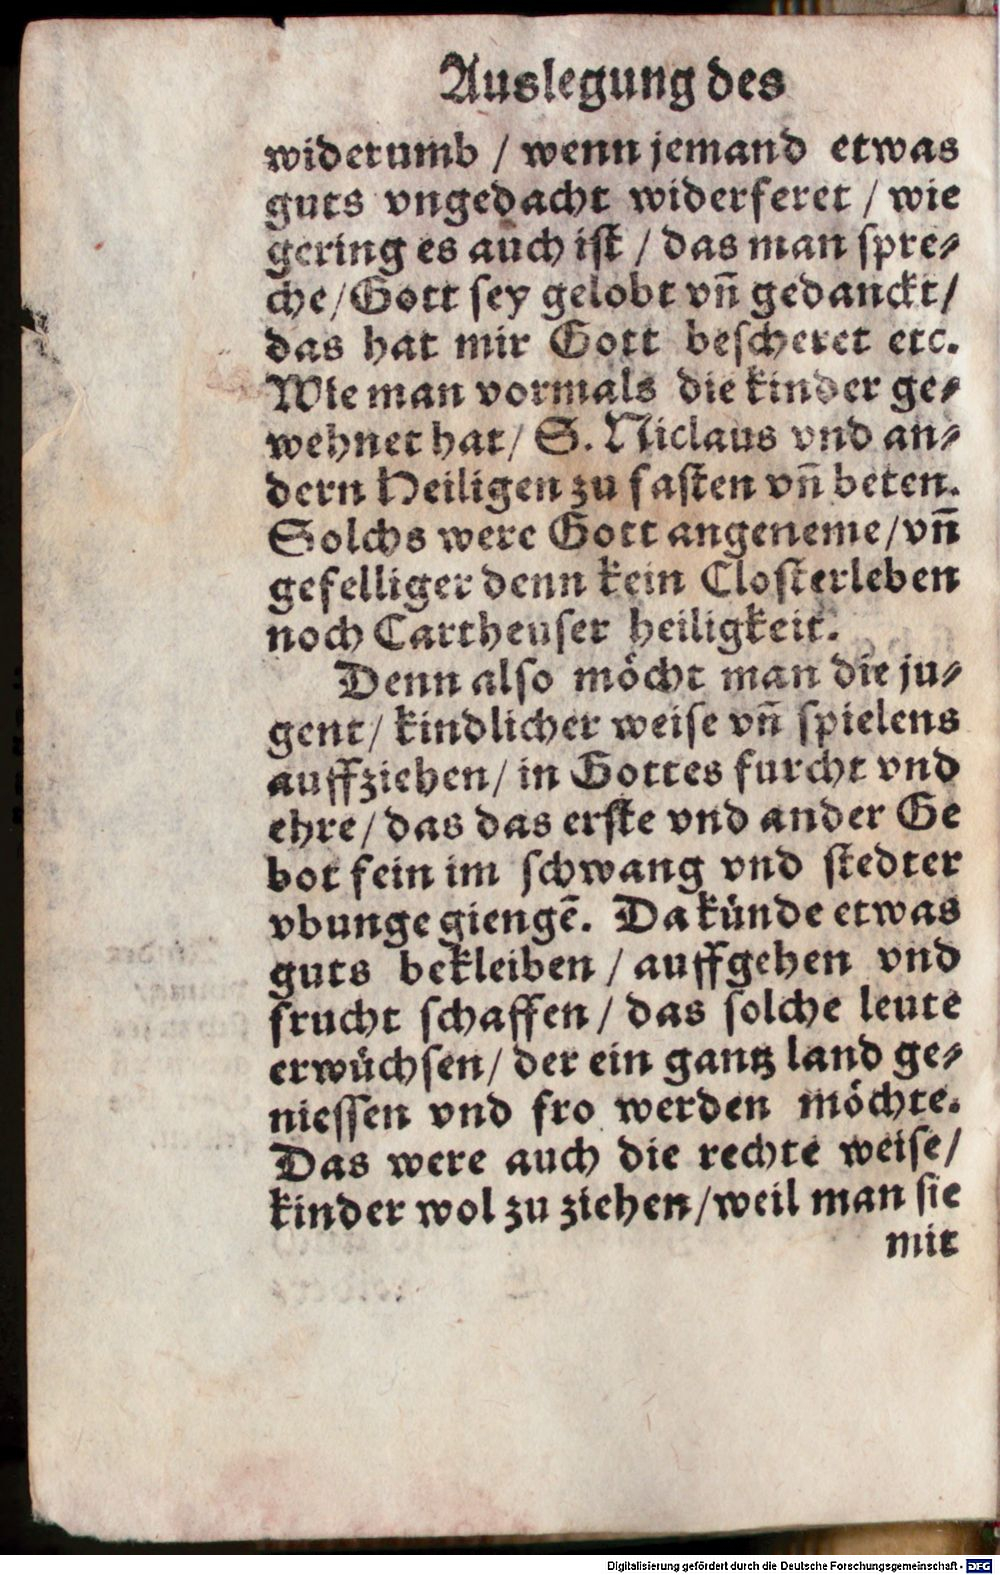 Auslegung des
widerumb / wenn jemand etwas
guts vngedacht widerferet / wie
gering es auch ist / das man spre⸗
che / Gott sey gelobt vñ gedanckt /
das hat mir Gott bescheret etc.
Wie man vormals die kinder ge⸗
wehnet hat / S. Niclaus vnd an⸗
dern Heiligen zu fasten vñ beten.
Solchs were Gott angeneme / vñ
gefelliger denn kein Closterleben
noch Cartheuser heiligkeit.
Denn also möcht man die ju⸗
gent / kindlicher weise vñ spielens
auffziehen / in Gottes furcht vnd
ehre / das das erste vnd ander Ge
bot fein im schwang vnd stedter
vbunge giengē. Da künde etwas
guts bekleiben / auffgehen vnd
frucht schaffen / das solche leute
erwüchsen / der ein gantz land ge⸗
niessen vnd fro werden möchte.
Das were auch die rechte weise /
kinder wol zu ziehen / weil man sie
mit
Digitalisierung gefördert durch die Deutsche Forschungsgemeinschaft - DFG